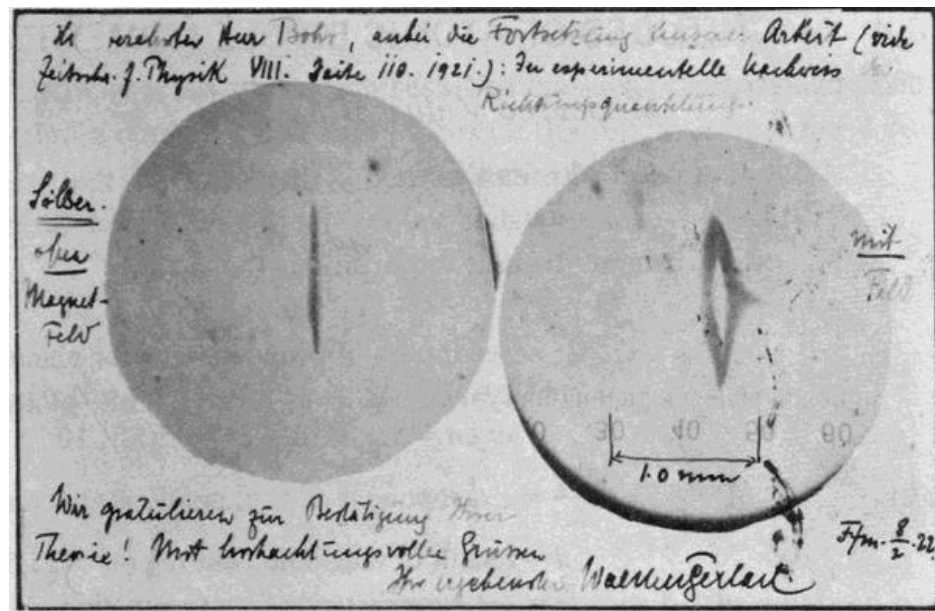 verehrter Herr Bohr, anbei die Fortsetzung unserer Arbeit (vide
Zeitschr. f. Physik VIII. Seite 110. 1921.): Der experimentelle Nachweis der
Richtungsquantelung.
Silber.
ohne
Magnet-
Feld
mit
Feld
30 40 50 60
1.0 mm
Wir gratulieren zur Bestätigung Ihrer
Theorie! Mit hochachtungsvollen Grüssen
Ihr ergebenster Walther Gerlach.
Ffm. 8/2.22